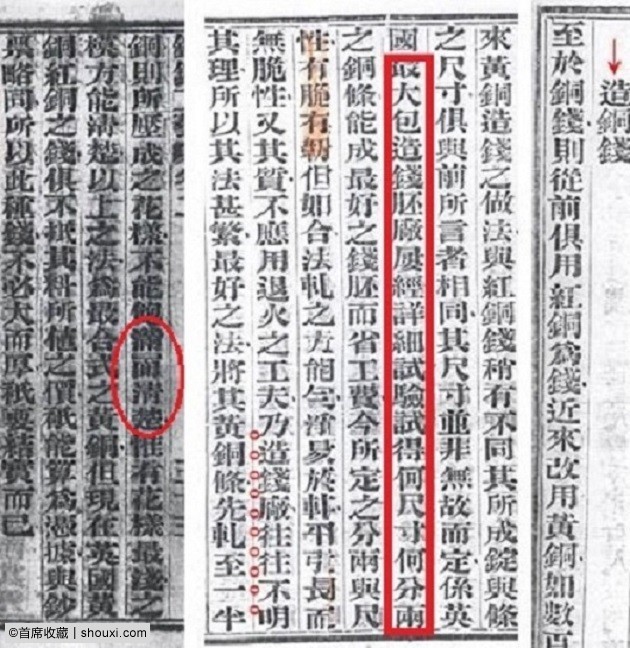 造銅錢
至於銅錢則從前俱用紅銅爲錢近來改用黃銅如數百
來黃銅造錢之做法與紅銅錢稍有不同其所成錠與條
之尺寸俱與前所言者相同其尺寸並非無故而定係英
國最大包造錢胚廠屢經詳細試驗試得何尺寸何分兩
之銅條能成最好之錢胚而省工費今所定之分兩與尺
性有脆有韌但如合法軋之方能勻淨易於軋平引長而
無脆性又其質不應用退火之工夫乃造錢廠往往不明
其理所以其法甚繁最好之法將其黃銅條先軋至一半
銅則所壓成之花樣不能飽滿而清楚惟有花樣最淺之
模方能清楚以上之法爲最合式之黃銅但現在英國黃
銅紅銅之錢俱不抵其料所值之價祇能算爲憑據與鈔
票略同所以此種錢不必大而厚祇要結實而已
©首席收藏 | shouxi.com